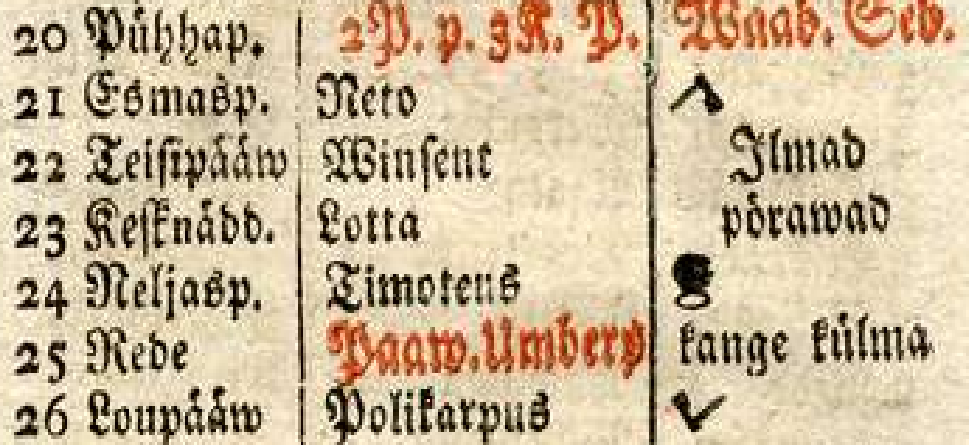 20 Pühhap. 2P. p. 3K. P. Waab. Seb.
21 Esmasp. Neto
22 Teistpääw Winsent Ilmad
23 Kesknädd. Lotta pörawad
24 Neljasp. Timoteus
25 Rede Paaw. Umberp kange külma
26 Loupääw Polikarpus